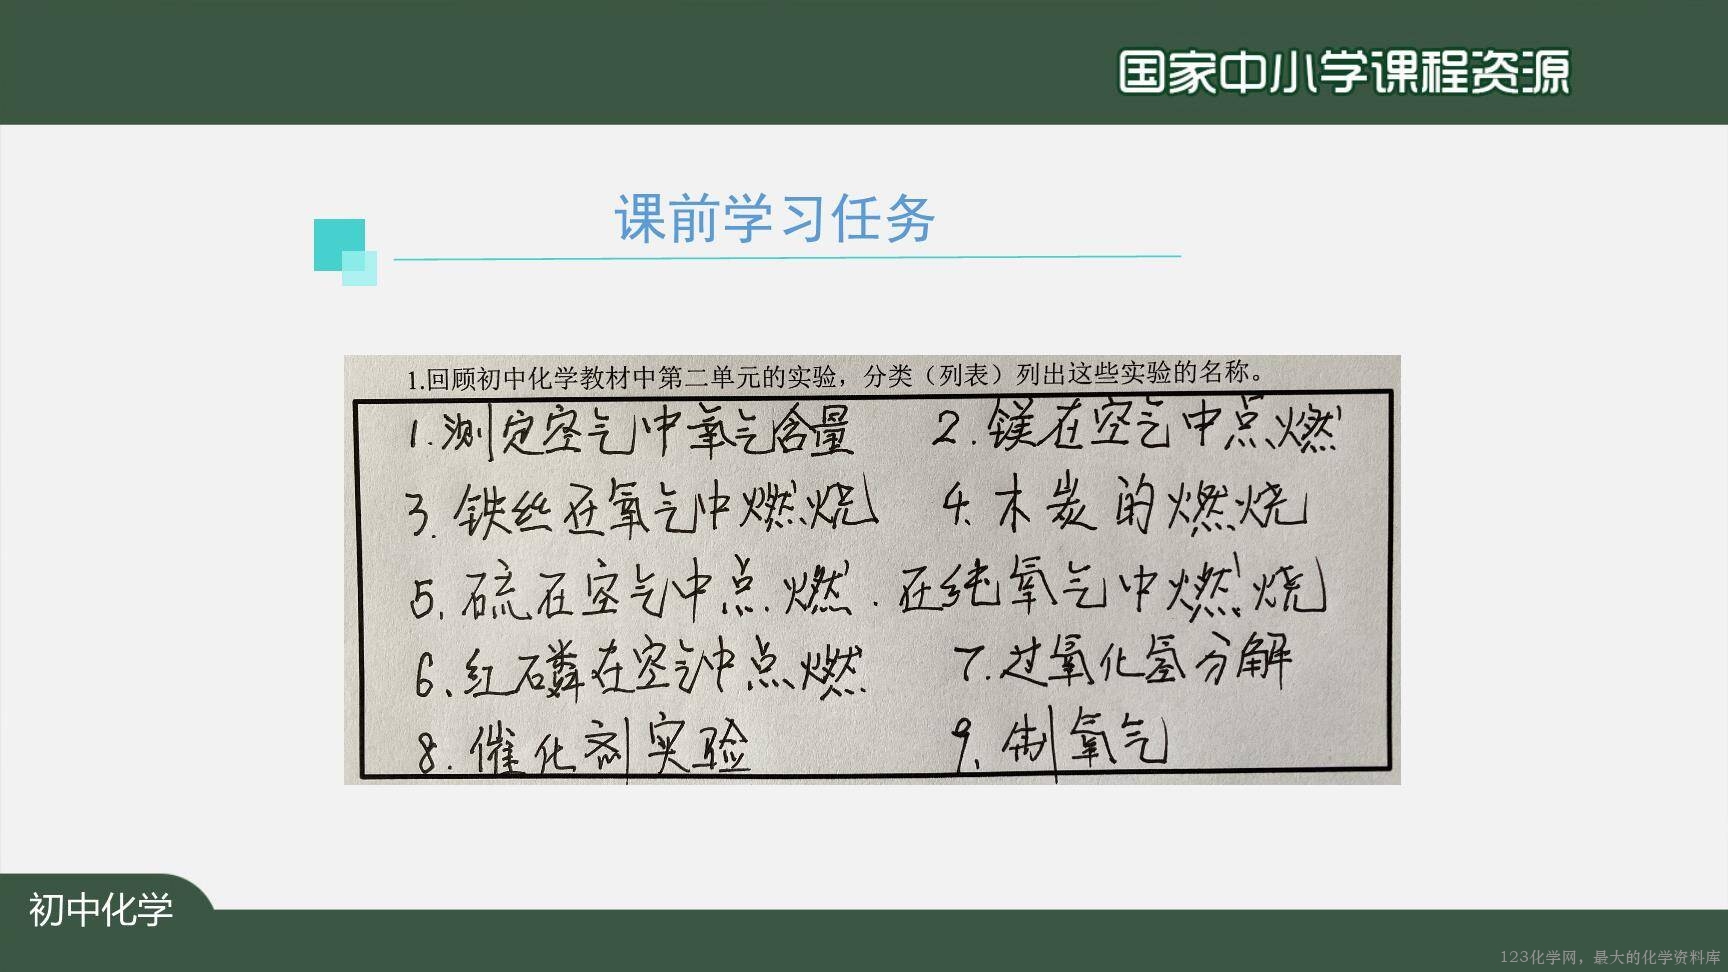 国家中小学课程资源
课前学习任务
1.回顾初中化学教材中第二单元的实验，分类（列表）列出这些实验的名称。
1.测定空气中氧气含量 2.镁在空气中点燃
3.铁丝在氧气中燃烧 4.木炭的燃烧
5.硫在空气中点燃.在纯氧气中燃烧
6、红磷在空气中点燃 7.过氧化氢分解
8.催化剂实验 9、制氧气
初中化学
123化学网，最大的化学资料库